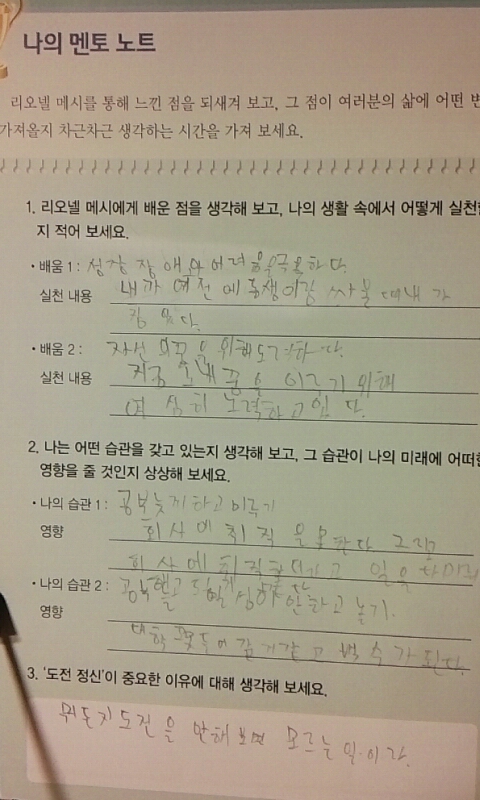 나의 멘토 노트
리오넬 메시를 통해 느낀 점을 되새겨 보고, 그 점이 여러분의 삶에 어떤 변
가져올지 차근차근 생각하는 시간을 가져 보세요.
1. 리오넬 메시에게 배운 점을 생각해 보고, 나의 생활 속에서 어떻게 실천할
지 적어 보세요.
• 배움 1 : 성장 장애와 어려움을 극복하다.
실천 내용 내가 예전에 동생이랑 싸울 때 내가
있다.
• 배움 2 : 자신의 꿈을 위해 노력하다.
실천 내용 지금 노래 꿈을 이루기 위해
열심히 노력하고 있다.
2. 나는 어떤 습관을 갖고 있는지 생각해 보고, 그 습관이 나의 미래에 어떠한
영향을 줄 것인지 상상해 보세요.
• 나의 습관 1 : 공부 늦게 하고 미루기
영향 회사에 취직을 못 한다. 그리고
회사에 취직 하고 일을
• 나의 습관 2 : 공부 열심히 안 하고 놀기.
영향
대학 못 들어갈 거 같고 백수가 된다.
3. '도전 정신'이 중요한 이유에 대해 생각해 보세요.
뭐든지 도전을 안 해보면 모르는 일이라.